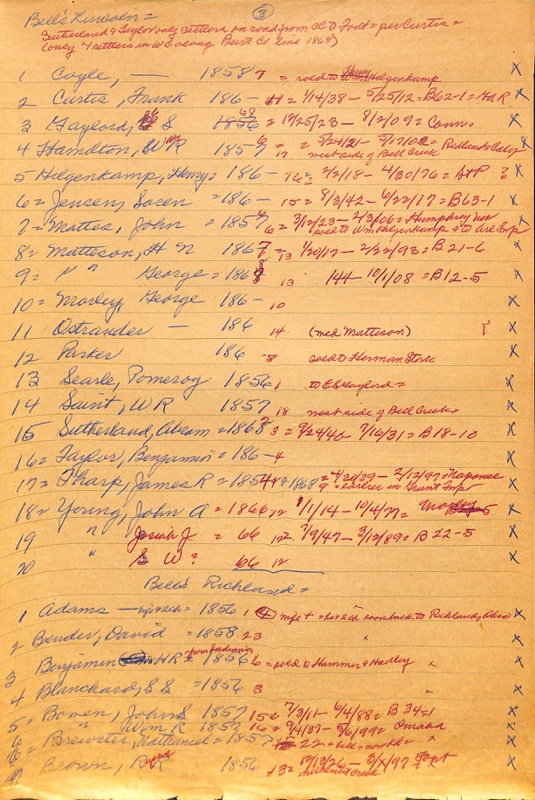 Bell's Lincoln =
3
Sutherland & Taylor only settlers on road from Cl to Font = per Curtis =
(only 4 settlers in W C along Burt Co line 1868)
1 Coyle, — 1858 7 = sold to Henry Helgenkamp X
2 Curtis, Frank 186 - 11 = 1/14/38 - 5/25/12 = B62-1 = X
3 Gaylord, E S 1856 68 = 12/25/23 - 8/2/09 = Conn. X
4 Hamilton, W R 1857 = 5/24/21 - 5/12/02 = X
12 west side of Bell Creek
5 Helgenkamp, Henry = 186 - 16 = 2/2/18 - 4/30/76 = ? X
6 = Jensen, Soren = 186 - 15 = 8/3/42 - 6/22/17 = B63-1 X
7 = Mattes, John = 1857 6 = 3/12/23 - 2/3/06 = Humphrey X
sold to Wm Helgenkamp =
8 = Matteson, H N 1867 = 13 1/20/17 - 2/22/93 = B21-6 X
9 = " " George = 1868 13 144 - 10/1/08 = B12-5 X
10 = Morley, George 186 - 10 X
11 Ostrander — 186 14 (med Matteson) ? X
12 Parker 186 -8 sold to Herman Stork X
13 Searle, Pomeroy 1856 1 to E S Gaylord = X
14 Saint, W R 1857 18 west side of Bell Creek = X
15 Sutherland, Abram = 1868 3 = 9/24/40 7/16/31 = B18-10 X
16 = Taylor, Benjamin = 186 - 4 X
17 = Tharp, James R = 1854 = 1868 = 4/30/39 - 2/12/97 = Naponee X
9 = earlier in Grant Twp
18 = Young, John A = 1866 12 1/1/14 - 10/4/77 = X
19 " Josiah J = 66 12 = 7/9/47 - 3/12/89 = B 22-5 X
20 " S W ? 66 12 X
Bell's Richland =
1 Adams — = 1856 1 back to Richland, Ohio X
2 Bender, David = 1858 23 " X
3 Benjamin H R = 1856 6 = sold to Hammer & Hadley " X
4 Blanchard, S S = 1856 3 " X
5 = Bowen, John S 1857 15 = 7/3/11 - 6/4/88 = B 34-1 X
6 " Wm R 1857 16 = 9/4/37 - 5/6/99 = Omaha X
= Brewster, Nathaniel = 1857 22 = " X
Brown, 1856 13 = 12/13/26 - 3/X/97 Font X